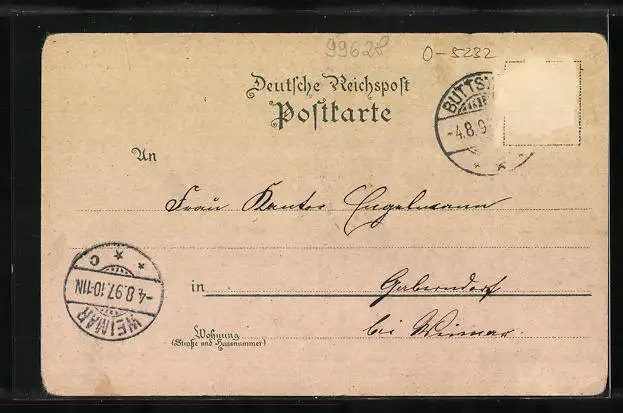 99628
O-5232
Deutsche Reichspost
Postkarte
BUTTS
-4.8.9
An
Frau Kantor Engelmann
in
Gaberndorf
bei Weimar.
Wohnung
(Straße und Hausnummer)
WEIMAR
-4.8.97.10-11N
C